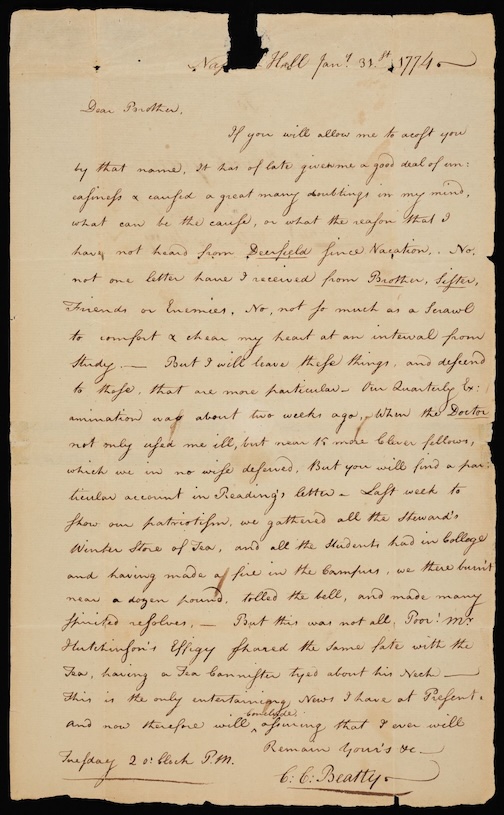 Nassau Hall Jany. 31st. 1774
Dear Brother,
If you will allow me to acost you
by that name, It has of late given me a good deal of un:
easiness & caused a great many doubtings in my mind,
what can be the cause, or what the reason that I
have not heard from Deerfield since Vacation,. No,
not one letter have I received from Brother, Sister,
Friends or Enemies, No, not so much as a Scrawl
to comfort & chear my heart at an interval from
Study. — But I will leave these things, and descend
to those, that are more particular – Our Quarterly Ex:
amination was about two weeks ago, When the Doctor
not only used me ill, but near 12 more Clever fellows,
which we in no wise deserved, But you will find a par:
ticular account in Reading's letter – Last week to
show our patriotism, we gathered all the Steward's
Winter Store of Tea, and all the Students had in College
and having made a fire in the Campus, we there burn't
near a dozen pound, tolled the bell, and made many
spirited resolves, — But this was not all, Poor! Mr
Hutchinson's Effigy shared the same fate with the
Tea, having a Tea Cannister tyed about his Neck —
This is the only entertaining News I have at Present.
And now therefore will conclude assuring that I ever will
Remain Your's &c —
Tuesday 2 o: Clock P.M.
C: C: Beatty.